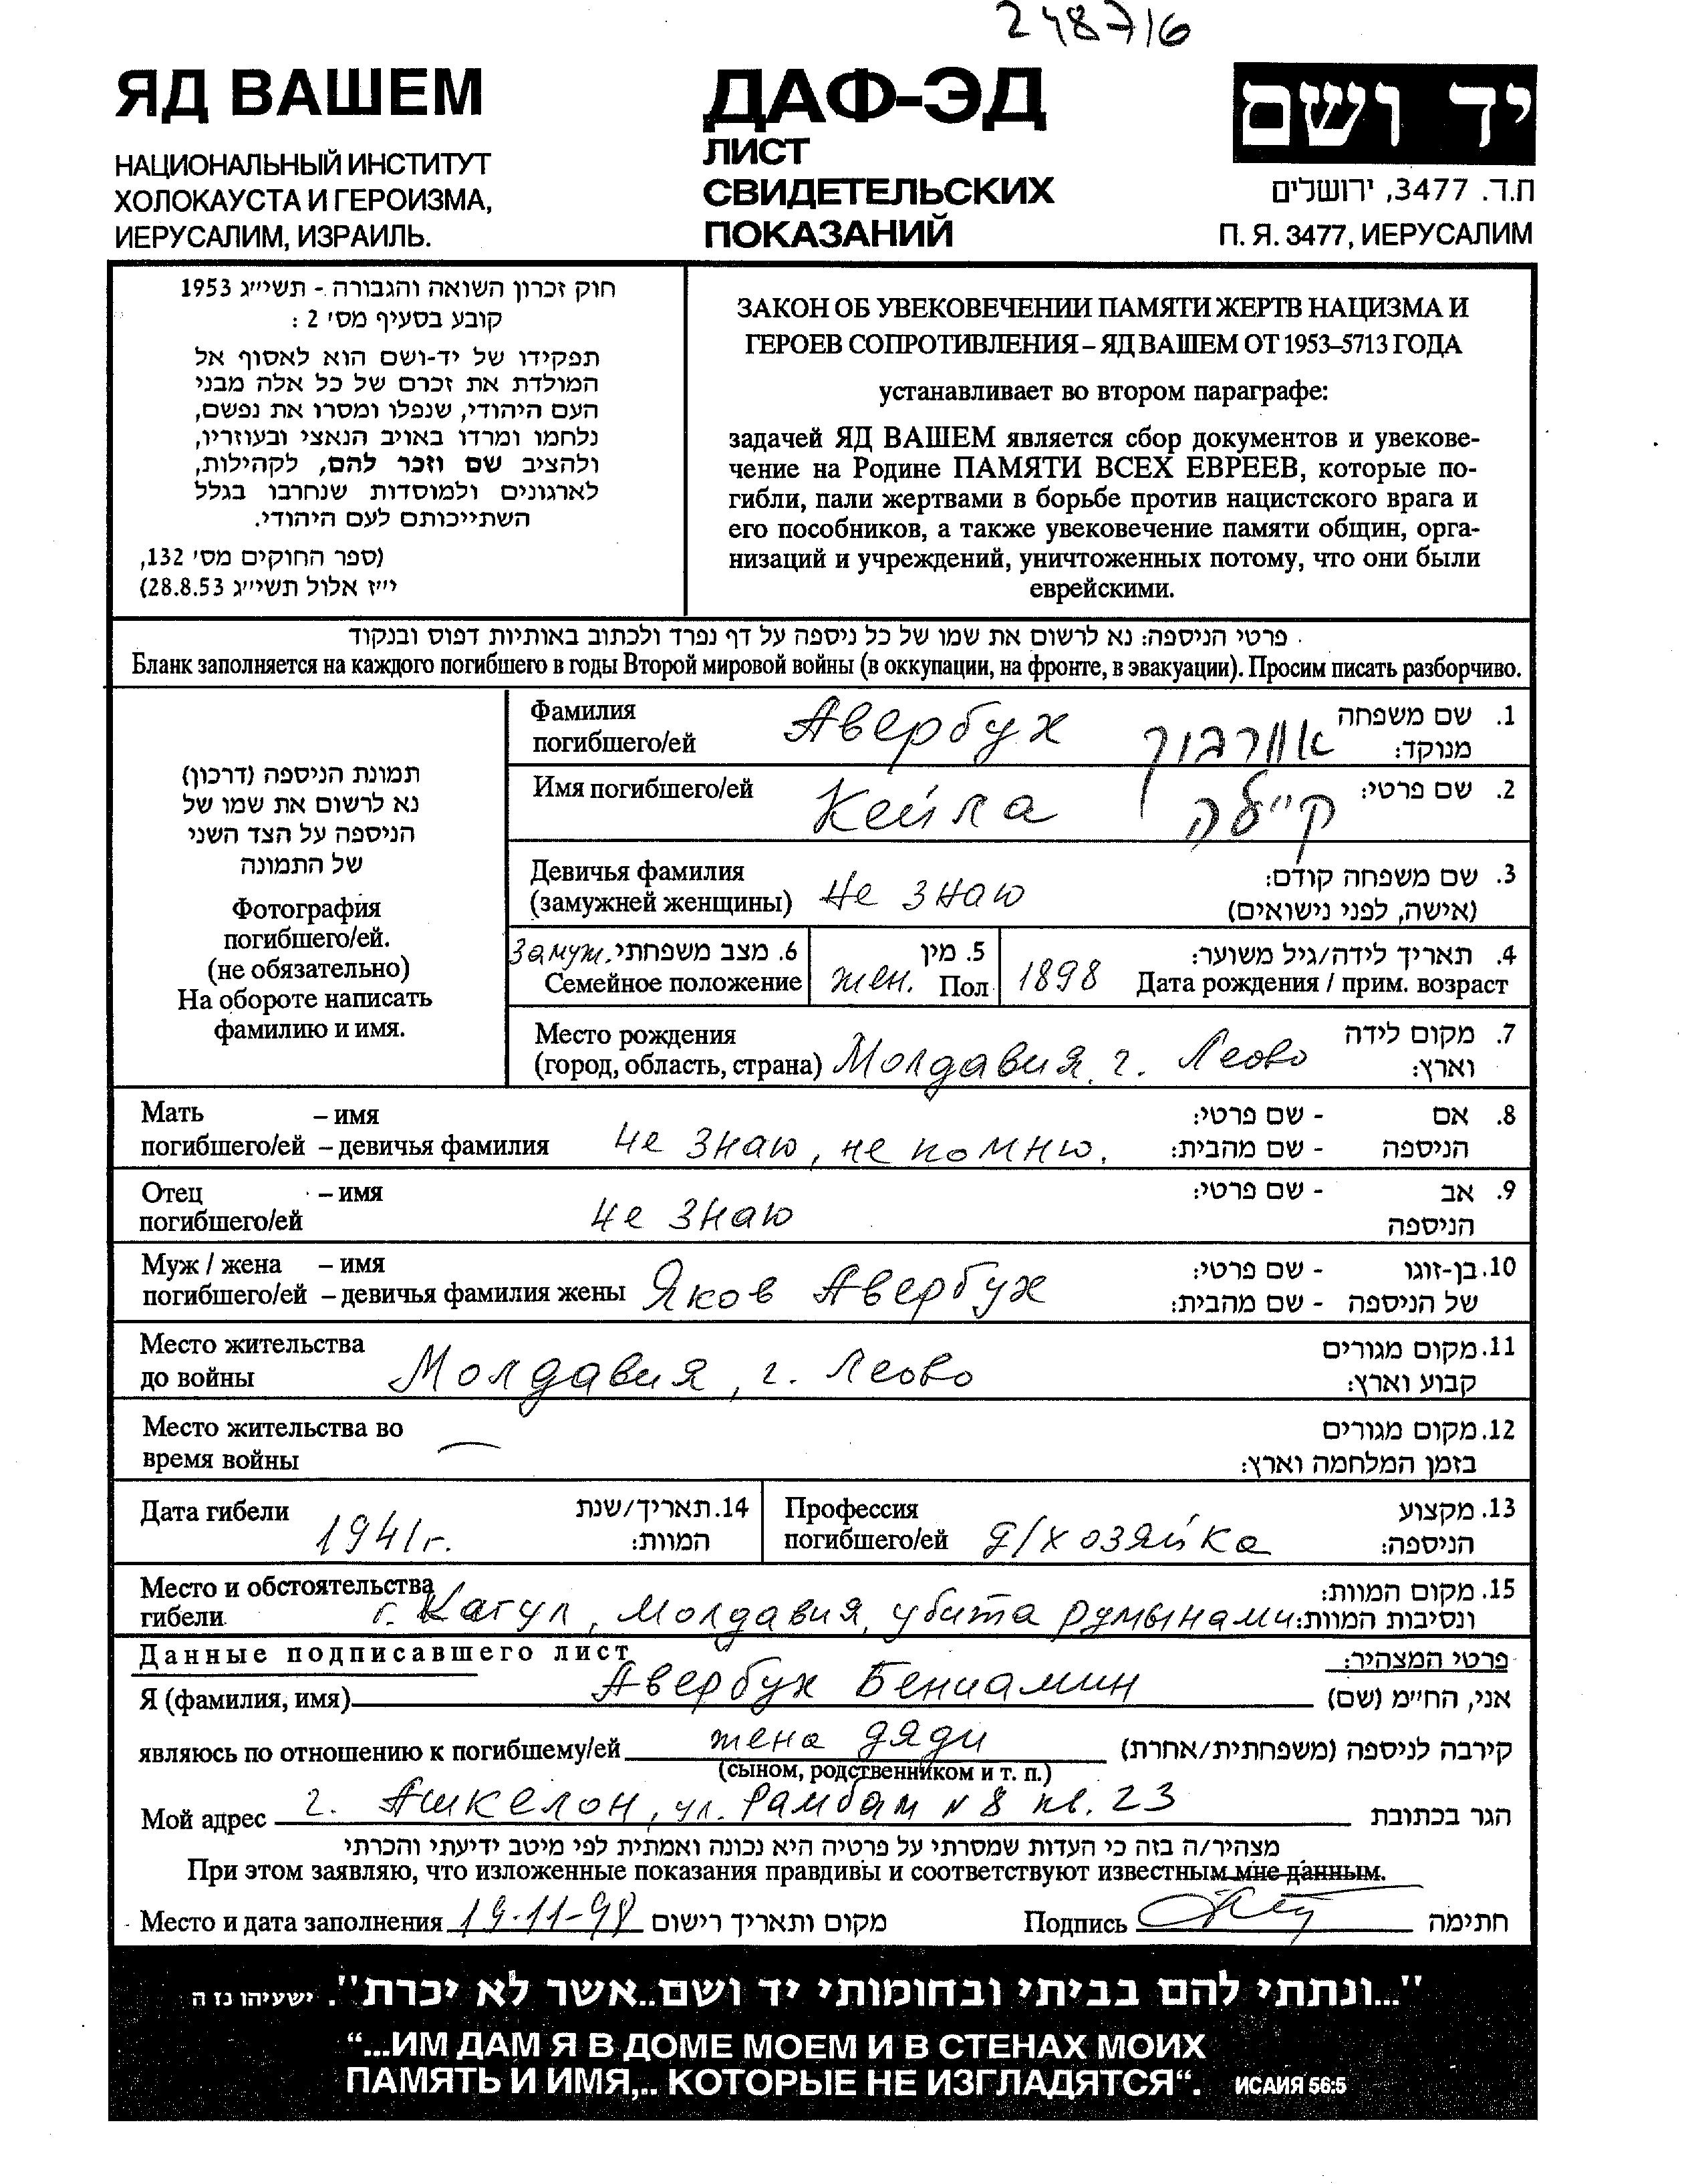 248716
ЯД ВАШЕМ
НАЦИОНАЛЬНЫЙ ИНСТИТУТ
ХОЛОКАУСТА И ГЕРОИЗМА,
ИЕРУСАЛИМ, ИЗРАИЛЬ.
ДАФ-ЭД
ЛИСТ
СВИДЕТЕЛЬСКИХ
ПОКАЗАНИЙ
יד ושם
ת.ד. 3477, ירושלים
П. Я. 3477, ИЕРУСАЛИМ
חוק זכרון השואה והגבורה - תשי״ג 1953
קובע בסעיף מס׳ 2 :
תפקידו של יד-ושם הוא לאסוף אל
המולדת את זכרם של כל אלה מבני
העם היהודי, שנפלו ומסרו את נפשם,
נלחמו ומרדו באויב הנאצי ובעוזריו,
ולהציב שם וזכר להם, לקהילות,
לארגונים ולמוסדות שנחרבו בגלל
השתייכותם לעם היהודי.
(ספר החוקים מס׳ 132,
י״ז אלול תשי״ג 28.8.53)
ЗАКОН ОБ УВЕКОВЕЧЕНИИ ПАМЯТИ ЖЕРТВ НАЦИЗМА И
ГЕРОЕВ СОПРОТИВЛЕНИЯ – ЯД ВАШЕМ ОТ 1953–5713 ГОДА
устанавливает во втором параграфе:
задачей ЯД ВАШЕМ является сбор документов и увекове-
чение на Родине ПАМЯТИ ВСЕХ ЕВРЕЕВ, которые по-
гибли, пали жертвами в борьбе против нацистского врага и
его пособников, а также увековечение памяти общин, орга-
низаций и учреждений, уничтоженных потому, что они были
еврейскими.
פרטי הניספה: נא לרשום את שמו של כל ניספה על דף נפרד ולכתוב באותיות דפוס ובנקוד
Бланк заполняется на каждого погибшего в годы Второй мировой войны (в оккупации, на фронте, в эвакуации). Просим писать разборчиво.
תמונת הניספה (דרכון)
נא לרשום את שמו של
הניספה על הצד השני
של התמונה
Фотография
погибшего/ей.
(не обязательно)
На обороте написать
фамилию и имя.
Фамилия Авербух אוורבוך 1. שם משפחה
погибшего/ей מנוקד:
Имя погибшего/ей Кейла קיילה 2. שם פרטי:
Девичья фамилия не знаю 3. שם משפחה קודם:
(замужней женщины) (אישה, לפני נישואים)
замуж. 6. מצב משפחתי 5. מין 4. תאריך לידה/גיל משוער:
Семейное положение жен. Пол 1898 Дата рождения / прим. возраст
Место рождения 7. מקום לידה
(город, область, страна) Молдавия, г. Леово וארץ:
Мать – имя 8. אם - שם פרטי:
погибшего/ей – девичья фамилия не знаю, не помню. הניספה - שם מהבית:
Отец – имя 9. אב - שם פרטי:
погибшего/ей не знаю הניספה
Муж / жена – имя 10. בן-זוגו - שם פרטי:
погибшего/ей – девичья фамилия жены Яков Авербух של הניספה - שם מהבית:
Место жительства 11. מקום מגורים
до войны Молдавия, г. Леово קבוע וארץ:
Место жительства во 12. מקום מגורים
время войны — בזמן המלחמה וארץ:
Дата гибели 1941г. 14. תאריך/שנת
המוות:
Профессия 13. מקצוע
погибшего/ей д/хозяйка הניספה:
Место и обстоятельства 15. מקום המוות:
гибели г. Кагул, Молдавия, убита румынами ונסיבות המוות:
Данные подписавшего лист פרטי המצהיר:
Я (фамилия, имя) Авербух Бениамин אני, הח״מ (שם)
являюсь по отношению к погибшему/ей жена дяди קירבה לניספה (משפחתית/אחרת)
(сыном, родственником и т. п.)
Мой адрес г. Ашкелон, ул. Рамбам № 8 кв. 23 הגר בכתובת
מצהיר/ה בזה כי העדות שמסרתי על פרטיה היא נכונה ואמתית לפי מיטב ידיעתי והכרתי
При этом заявляю, что изложенные показания правдивы и соответствуют известным мне данным.
Место и дата заполнения 19-11-98 מקום ותאריך רישום Подпись חתימה
"...ונתתי להם בביתי ובחומותי יד ושם..אשר לא יכרת". ישעיהו נז ה
“...ИМ ДАМ Я В ДОМЕ МОЕМ И В СТЕНАХ МОИХ
ПАМЯТЬ И ИМЯ,.. КОТОРЫЕ НЕ ИЗГЛАДЯТСЯ“. ИСАИЯ 56:5